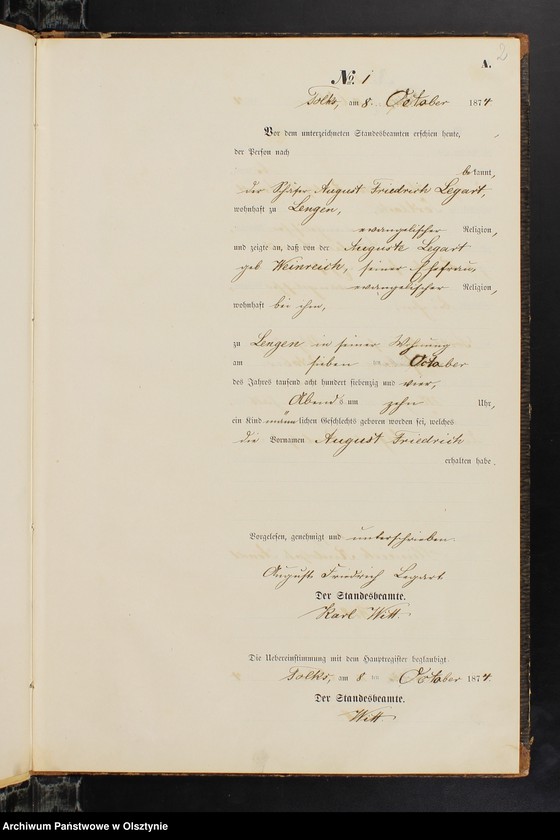 2
A.
No. 1
Tolks, am 8. October 1874
Vor dem unterzeichneten Standesbeamten erschien heute,
der Person nach
bekannt,
der Schäfer August Friedrich Legart,
wohnhaft zu Lengen,
evangelischer Religion,
und zeigte an, daß von der Auguste Legart
geb Weinreich, seiner Ehefrau,
evangelischer Religion,
wohnhaft bei ihm,
zu Lengen in seiner Wohnung
am sieben October
des Jahres tausend acht hundert siebenzig und vier,
Abends um zehn Uhr,
ein Kind männlichen Geschlechts geboren worden sei, welches
die Vornamen August Friedrich
erhalten habe.
Vorgelesen, genehmigt und unterschrieben.
August Friedrich Legart
Der Standesbeamte.
Karl Witt.
Die Uebereinstimmung mit dem Hauptregister beglaubigt.
Tolks, am 8 ten October 1874.
Der Standesbeamte.
Witt
Archiwum Państwowe w Olsztynie